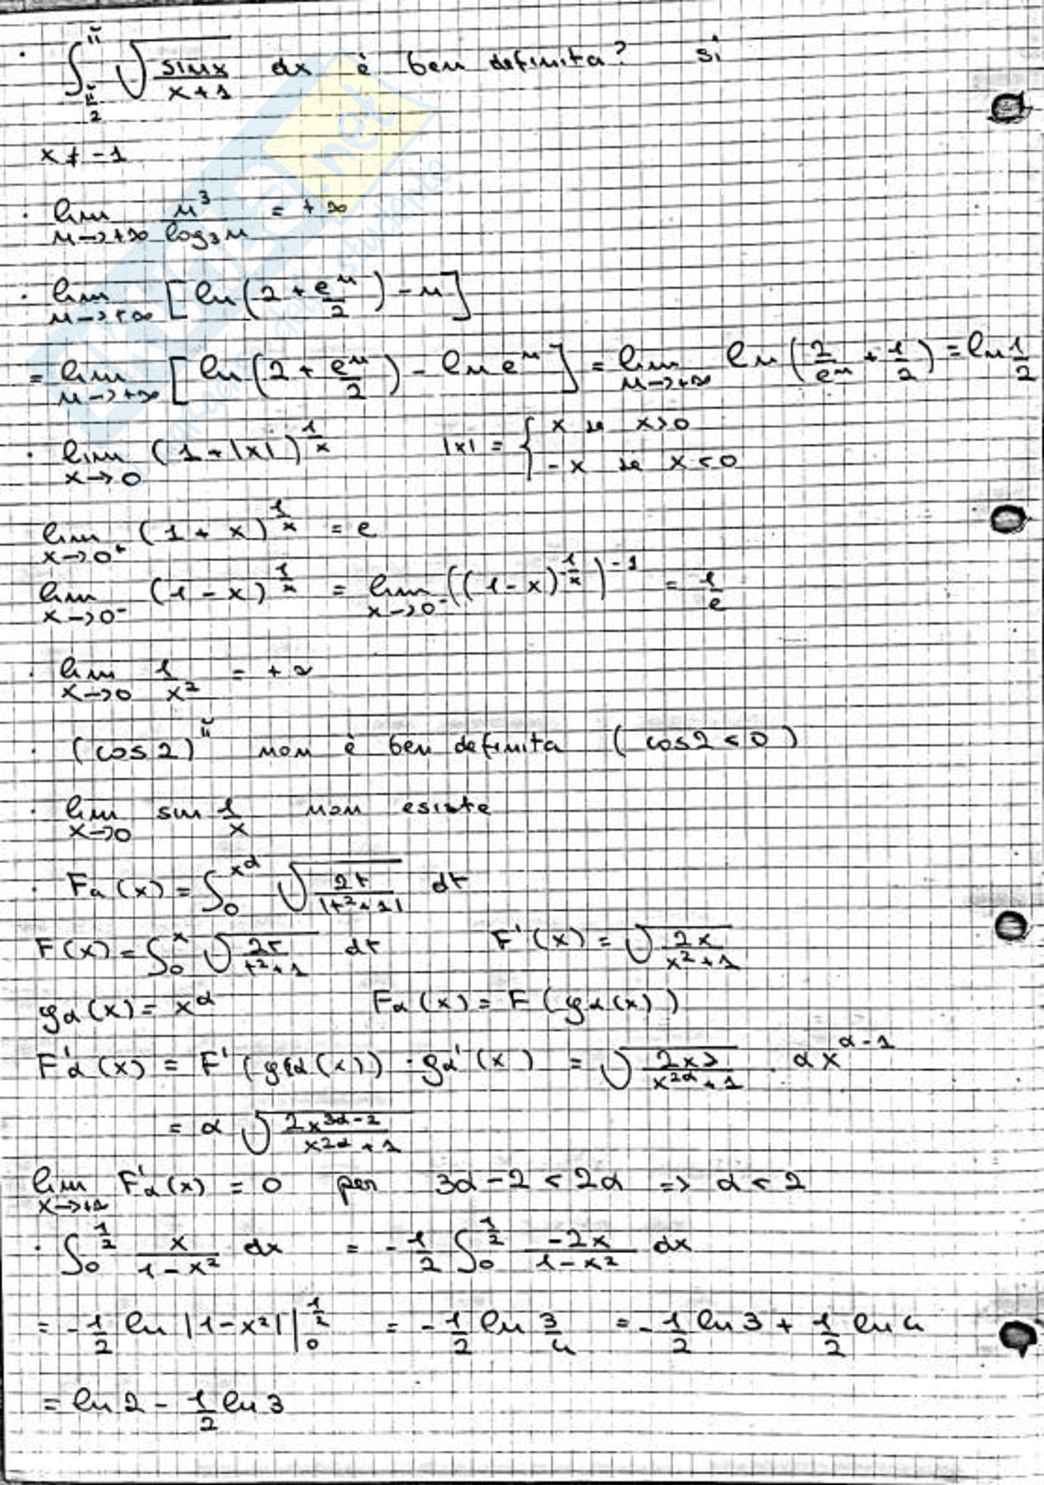 · ∫_{π/2}^{π} √(sin x / (x+1)) dx è ben definita? si
x ≠ -1
· lim_{n→+∞} n³ / log₃ n = +∞
· lim_{n→+∞} [ln(2 + eⁿ/2) - n]
= lim_{n→+∞} [ln(2 + eⁿ/2) - ln eⁿ] = lim_{n→+∞} ln(2/eⁿ + 1/2) = ln 1/2
· lim_{x→0} (1+|x|)^{1/x} |x| = { x se x>0
-x se x<0
lim_{x→0⁺} (1+x)^{1/x} = e
lim_{x→0⁻} (1-x)^{1/x} = lim_{x→0⁻} ((1-x)^{-1/x})^{-1} = 1/e
· lim_{x→0} 1/x² = +∞
· (cos 2)^π non è ben definita (cos 2 < 0)
· lim_{x→0} sin 1/x non esiste
· Fα(x) = ∫_0^{x^α} √(2t / |t²+1|) dt
F(x) = ∫_0^x √(2t / (t²+1)) dt F'(x) = √(2x / (x²+1))
gα(x) = x^α Fα(x) = F(gα(x))
F'α(x) = F'(gα(x)) · gα'(x) = √(2x^α / (x^{2α}+1)) · αx^{α-1}
= α √(2x^{3α-2} / (x^{2α}+1))
lim_{x→+∞} F'α(x) = 0 per 3α-2 < 2α => α < 2
· ∫_0^{1/2} x/(1-x²) dx = -1/2 ∫_0^{1/2} -2x/(1-x²) dx
= -1/2 ln|1-x²| |_0^{1/2} = -1/2 ln 3/4 = -1/2 ln 3 + 1/2 ln 4
= ln 2 - 1/2 ln 3